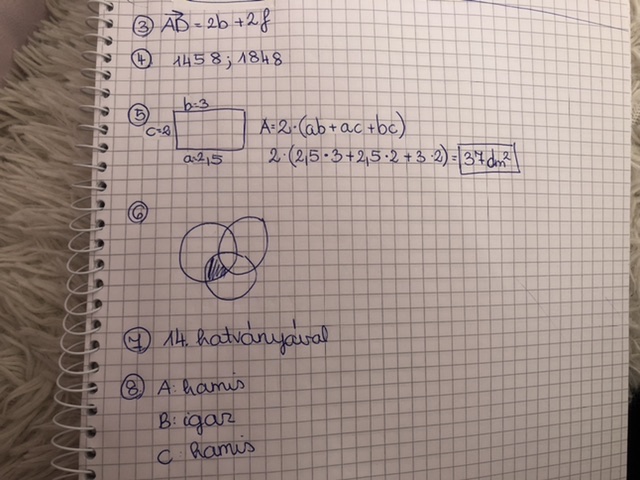 3 AD = 2b + 2f
4 1458; 1848
5 b=3
c=2
a=2,5
A=2·(ab+ac+bc)
2·(2,5·3+2,5·2+3·2)=37dm²
6
7 14. hatványával
8 A: hamis
B: igaz
C: hamis